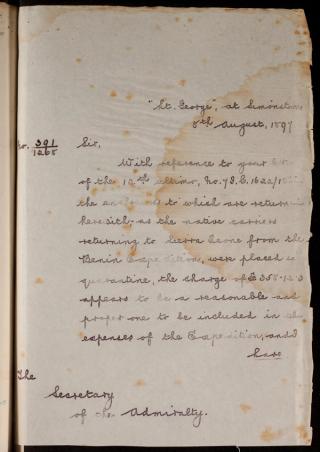 "St. George", at Simonstown
8th August, 1897
No. 391/1268
Sir,
With reference to your
of the 12th ultimo, No. 7
the to which are return
herewith - as the native carriers
returning to Sierra Leone from the
Benin Expedition, were placed in
quarantine, the charge of £358-12-3
appears to be a reasonable and
proper one to be included in the
expenses of the Expedition, and I
have
The
Secretary
of the Admiralty.